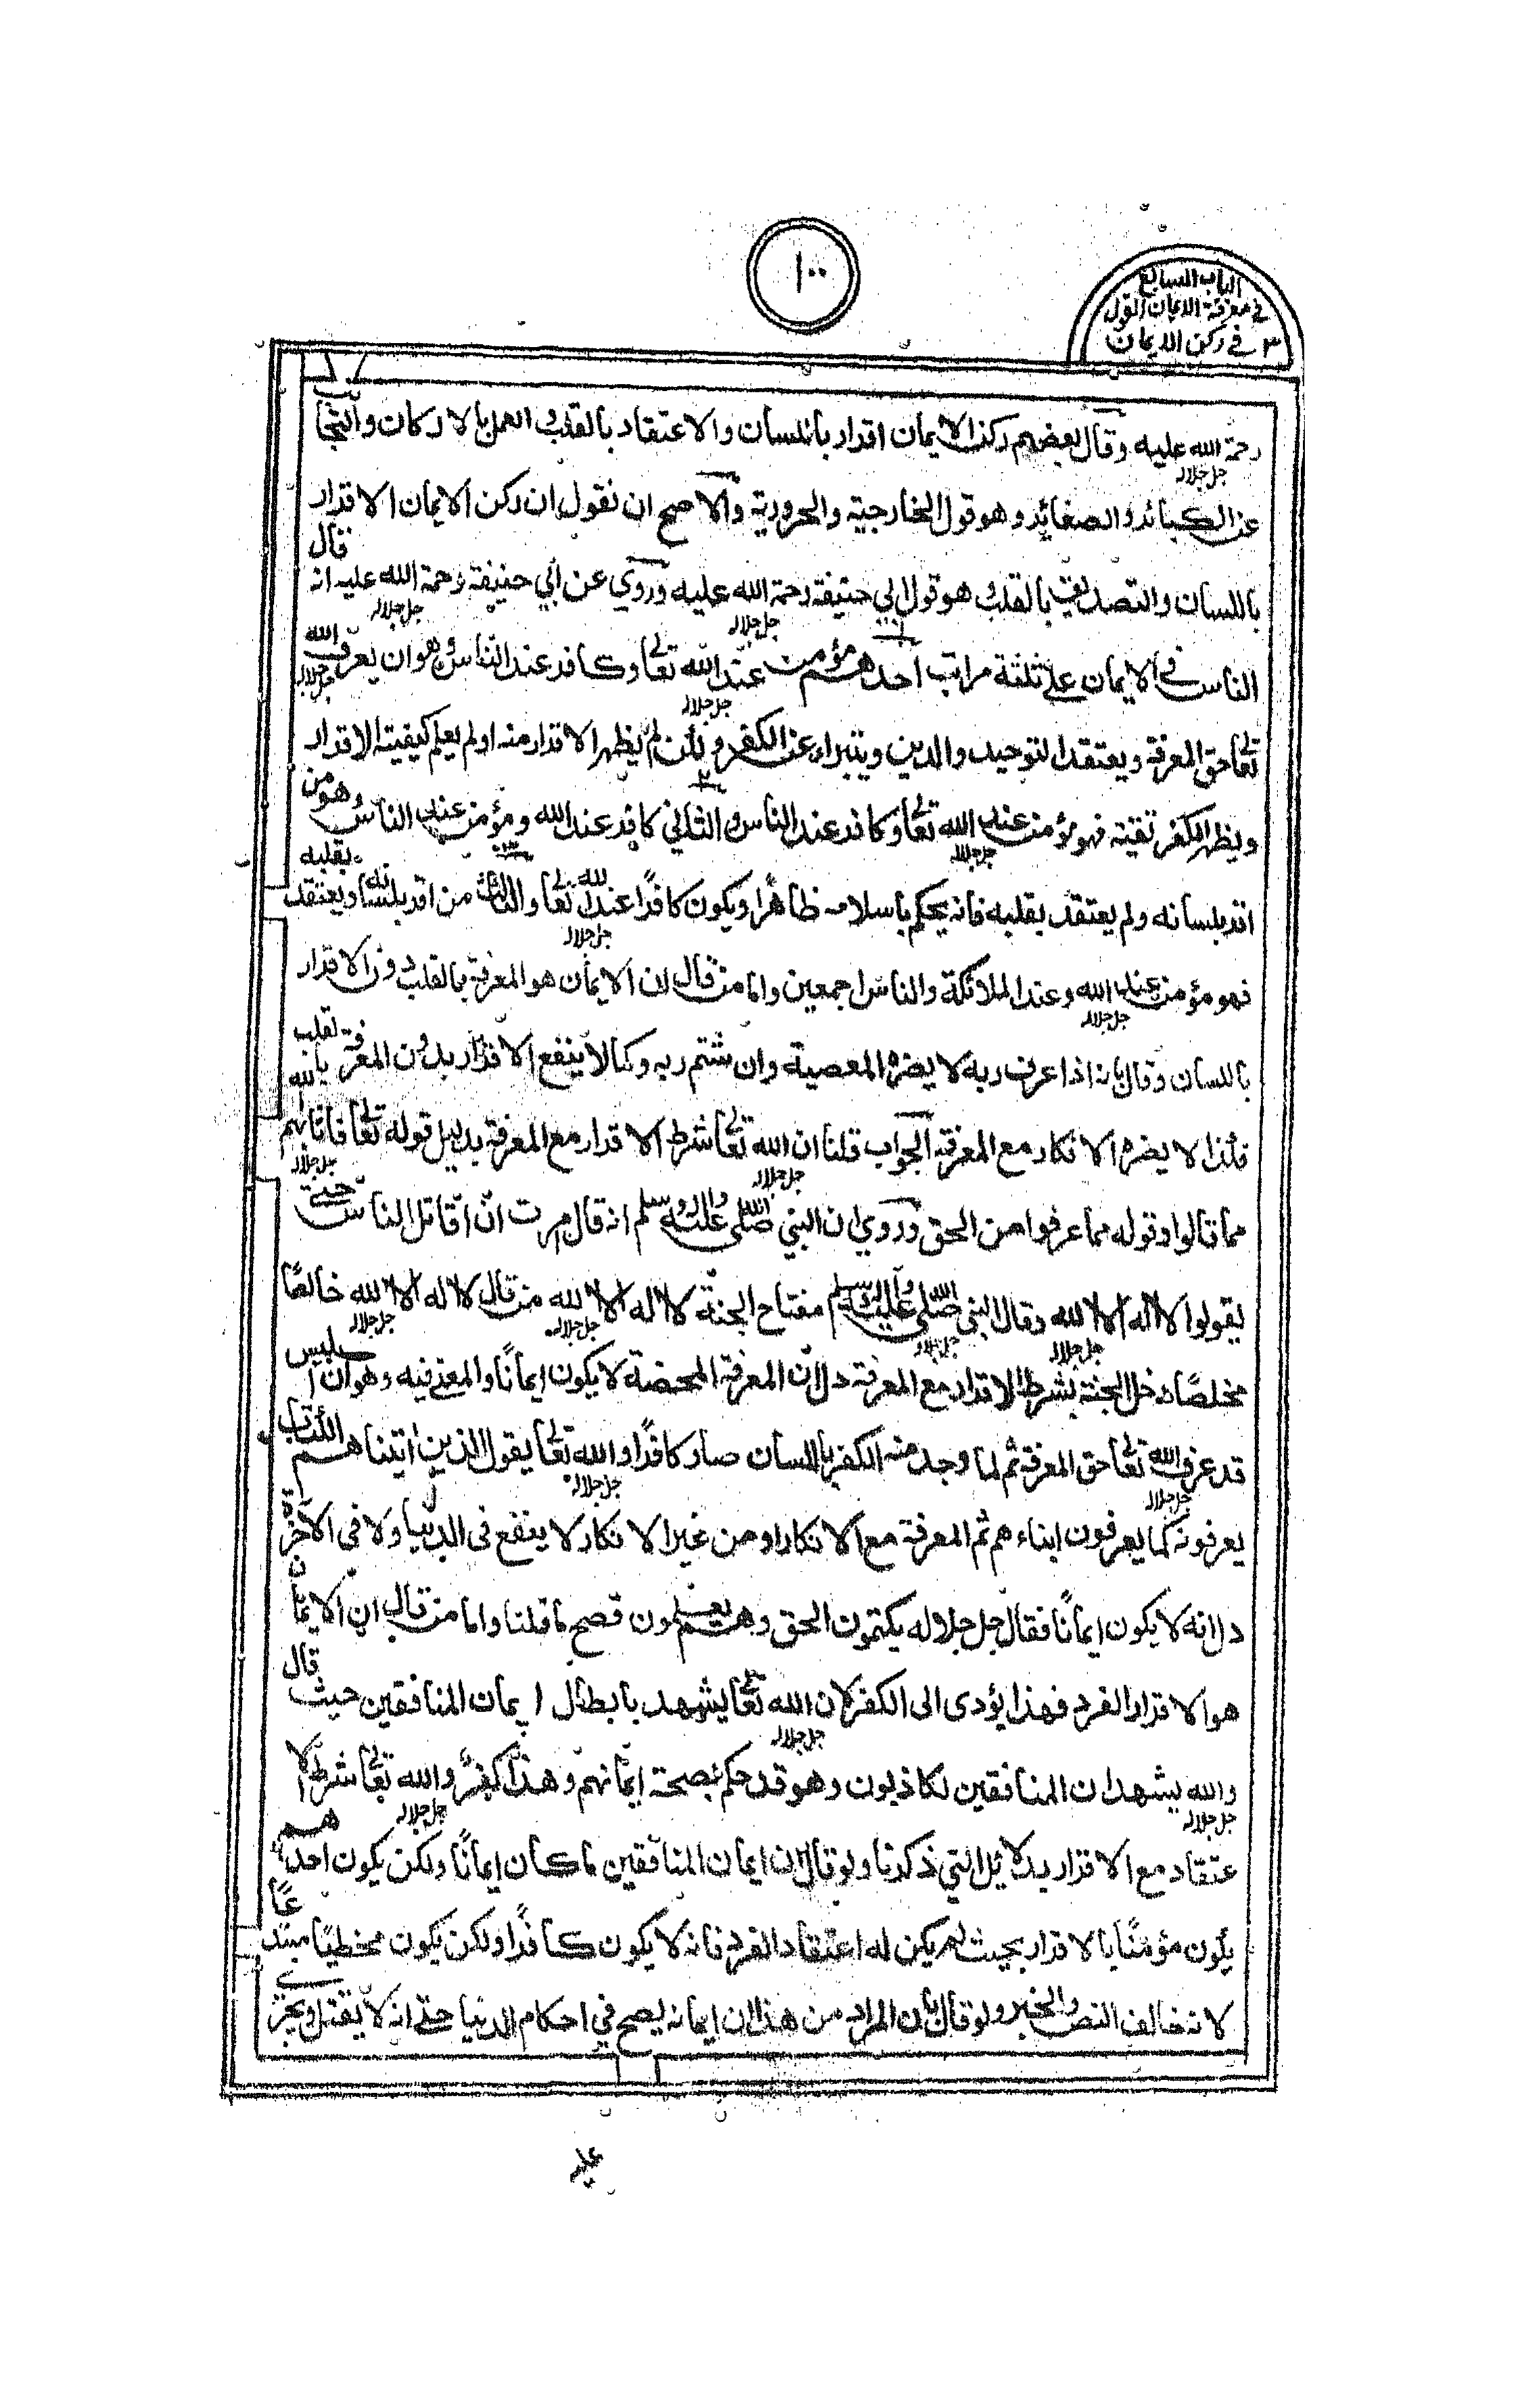 ١٠٠
الباب السابع
في معرفة الايمان القول
٣ في ركن الايمان
رحمة الله عليه وقال بعضهم ركن الايمان اقرار باللسان والاعتقاد بالقلب والعمل بالاركان والتجانب
جل جلاله
عن الكبائر والصغائر وهو قول الخارجية والحرورية والاصح ان نقول ان ركن الايمان الاقرار
باللسان والتصديق بالقلب وهو قول ابي حنيفة رحمة الله عليه وروي عن أبي حنيفة رحمة الله عليه انه قال
جل جلاله جل جلاله
الناس في الايمان على ثلثة مراتب احدهم مؤمن عند الله تعالى وكافر عند الناس وهو ان يعرف الله
جل جلاله جل جلاله
تعالى حق المعرفة ويعتقد التوحيد والدين ويتبراء عن الكفر ولكن لم يظهر الاقرار منه او لم يعلم كيفيته الاقرار
ويظهر الكفر تقية فهو مؤمن عند الله تعالى وكافر عند الناس والثاني كافر عند الله ومؤمن عند الناس وهو من
جل جلاله
اقر بلسانه ولم يعتقد بقلبه فانه يحكم باسلامه ظاهرًا ويكون كافرًا عند الله تعالى والثالث من اقر بلسانه ويعتقد بقلبه
جل جلاله
فهو مؤمن عند الله وعند الملائكة والناس اجمعين واما من قال ان الايمان هو المعرفة بالقلب دون الاقرار
جل جلاله
باللسان وقال بانه اذا عرف ربه لا يضره المعصية وان شتم ربه وكما لا ينفع الاقرار بدون المعرفة بالقلب
فكذا لا يضره الانكار مع المعرفة الجواب قلنا ان الله تعالى شرط الاقرار مع المعرفة بدليل قوله تعالى فاثابهم الله
جل جلاله جل جلاله
مما قالوا وقوله مما عرفوا من الحق وروي ان النبي صلى الله عليه واله وسلم انه قال امرت ان اقاتل الناس حتى
يقولوا لا اله الا الله وقال النبي صلى الله عليه واله وسلم مفتاح الجنة لا اله الا الله من قال لا اله الا الله خالصًا
جل جلاله جل جلاله جل جلاله جل جلاله
مخلصًا دخل الجنة بشرط الاقرار مع المعرفة دل ان المعرفة المحضة لا يكون ايمانًا والمعنى فيه وهو ان ابليس
قد عرف الله تعالى حق المعرفة ثم لما وجد منه الكفر باللسان صار كافرًا والله تعالى يقول الذين اتينا هم الكتاب
جل جلاله جل جلاله
يعرفونه كما يعرفون ابناء هم ثم المعرفة مع الانكار او من غير الانكار لا ينفع فى الدنيا ولا فى الاخرة
دل انه لا يكون ايمانًا فقال جل جلاله يكتمون الحق وهم يعلمون فصح ما قلنا واما من قال ان الايمان
هو الاقرار الفرد فهذا يؤدى الى الكفر لان الله تعالى يشهد بابطال ايمان المنافقين حيث قال
جل جلاله
والله يشهد ان المنافقين لكاذبون وهو قد حكم بصحة ايمانهم وهذا كفر والله تعالى شرط الا
جل جلاله جل جلاله
عتقاد مع الاقرار بدلائل التي ذكرنا ولو قال ان ايمان المنافقين ما كان ايمانًا ولكن يكون احدهم
يكون مؤمنًا بالاقرار بحيث لم يكن له اعتقاد الفرد فانه لا يكون كافرًا ولكن يكون مخطيًا مبتدعًا
لانه خالف النص والخبر ولو قال بان المراد من هذا ان ايمانه يصح في احكام الدنيا حتى انه لا يقتل ويجرى
على